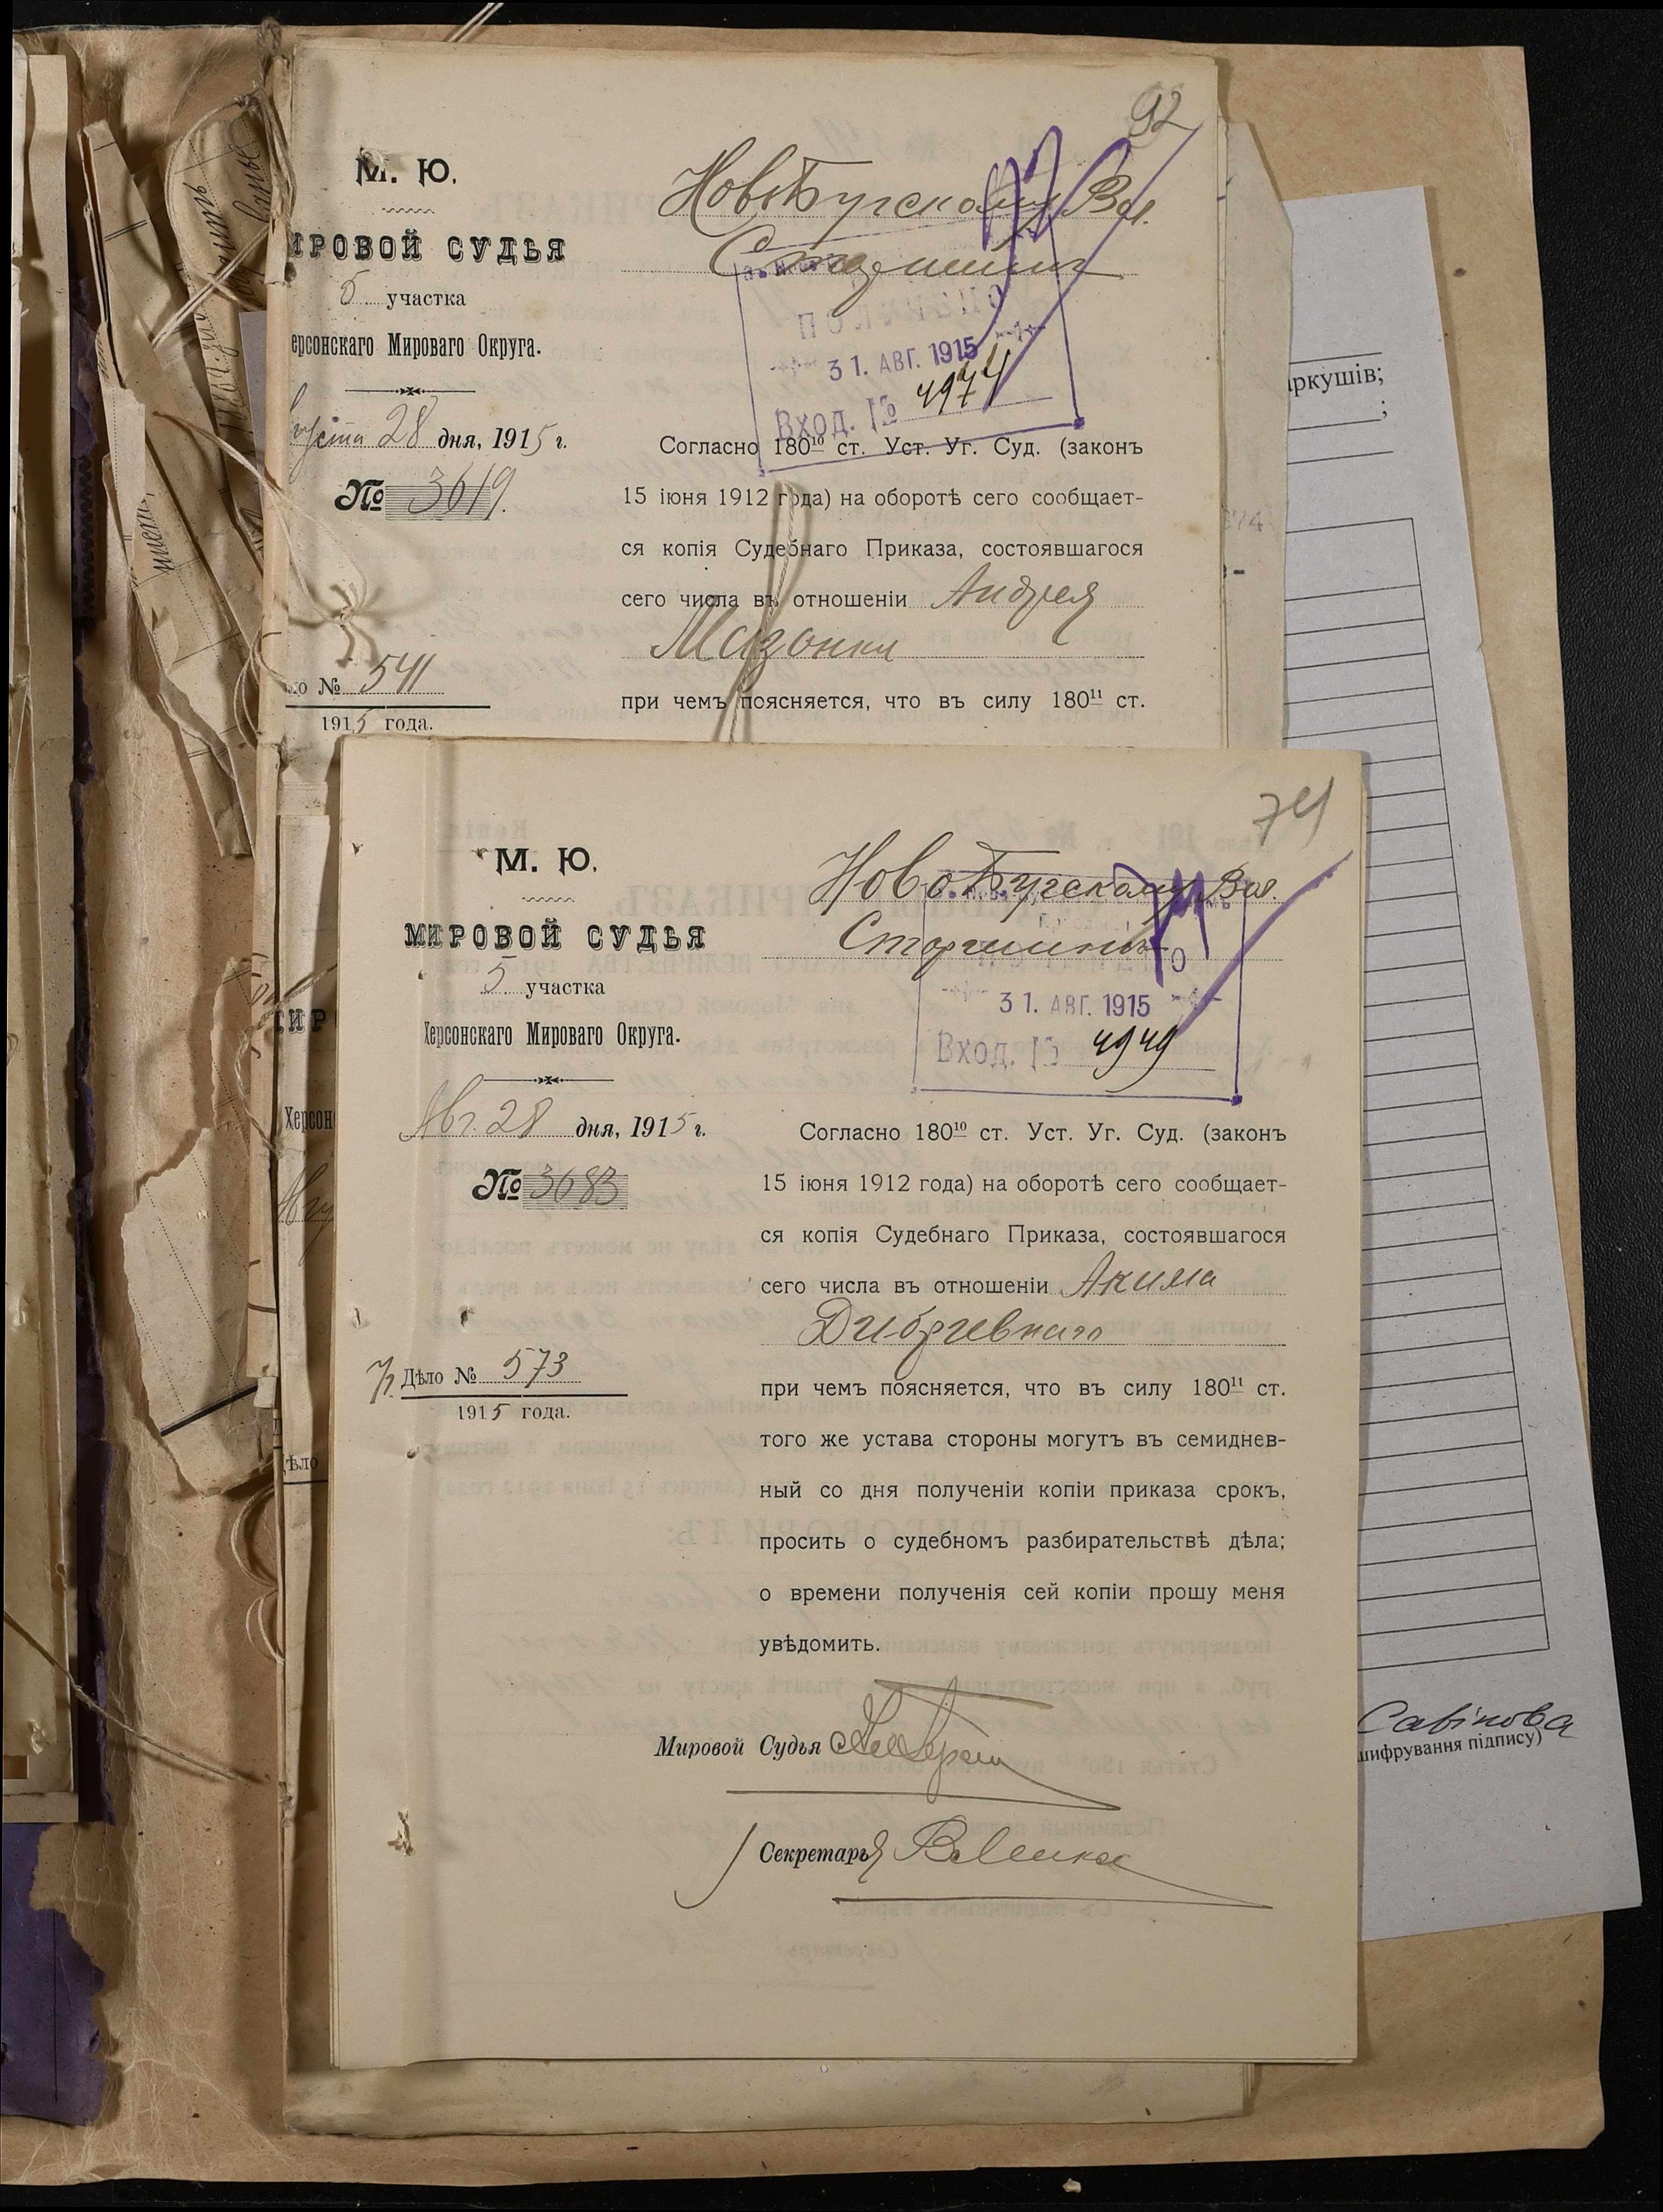 92
М. Ю.
НовоБугскому Вол.
Старшинѣ
ИРОВОЙ СУДЬЯ
5 участка
ерсонскаго Мироваго Округа.
ПОЛУЧЕНО
31. АВГ. 1915
Вход. № 4974
августа 28 дня, 1915 г.
№ 3619.
Согласно 180¹⁰ ст. Уст. Уг. Суд. (законъ
15 іюня 1912 года) на оборотѣ сего сообщает-
ся копія Судебнаго Приказа, состоявшагося
сего числа въ отношеніи Андрея
Мазонки
ло № 541
1915 года.
при чемъ поясняется, что въ силу 180¹¹ ст.
74
М. Ю.
НовоБугскому Вол.
Старшинѣ
МИРОВОЙ СУДЬЯ
5 участка
Херсонскаго Мироваго Округа.
31. АВГ. 1915
Вход. № 4949
Авг. 28 дня, 1915 г.
№ 3683
Согласно 180¹⁰ ст. Уст. Уг. Суд. (законъ
15 іюня 1912 года) на оборотѣ сего сообщает-
ся копія Судебнаго Приказа, состоявшагося
сего числа въ отношеніи Акима
Дибривнаго
Дѣло № 573
1915 года.
при чемъ поясняется, что въ силу 180¹¹ ст.
того же устава стороны могутъ въ семиднев-
ный со дня полученіи копіи приказа срокъ,
просить о судебномъ разбирательствѣ дѣла;
о времени полученія сей копіи прошу меня
увѣдомить.
Мировой Судья
Секретарь
ИР
Херсон
ѣло
аркушів;
;
Савінова
шифрування підпису)